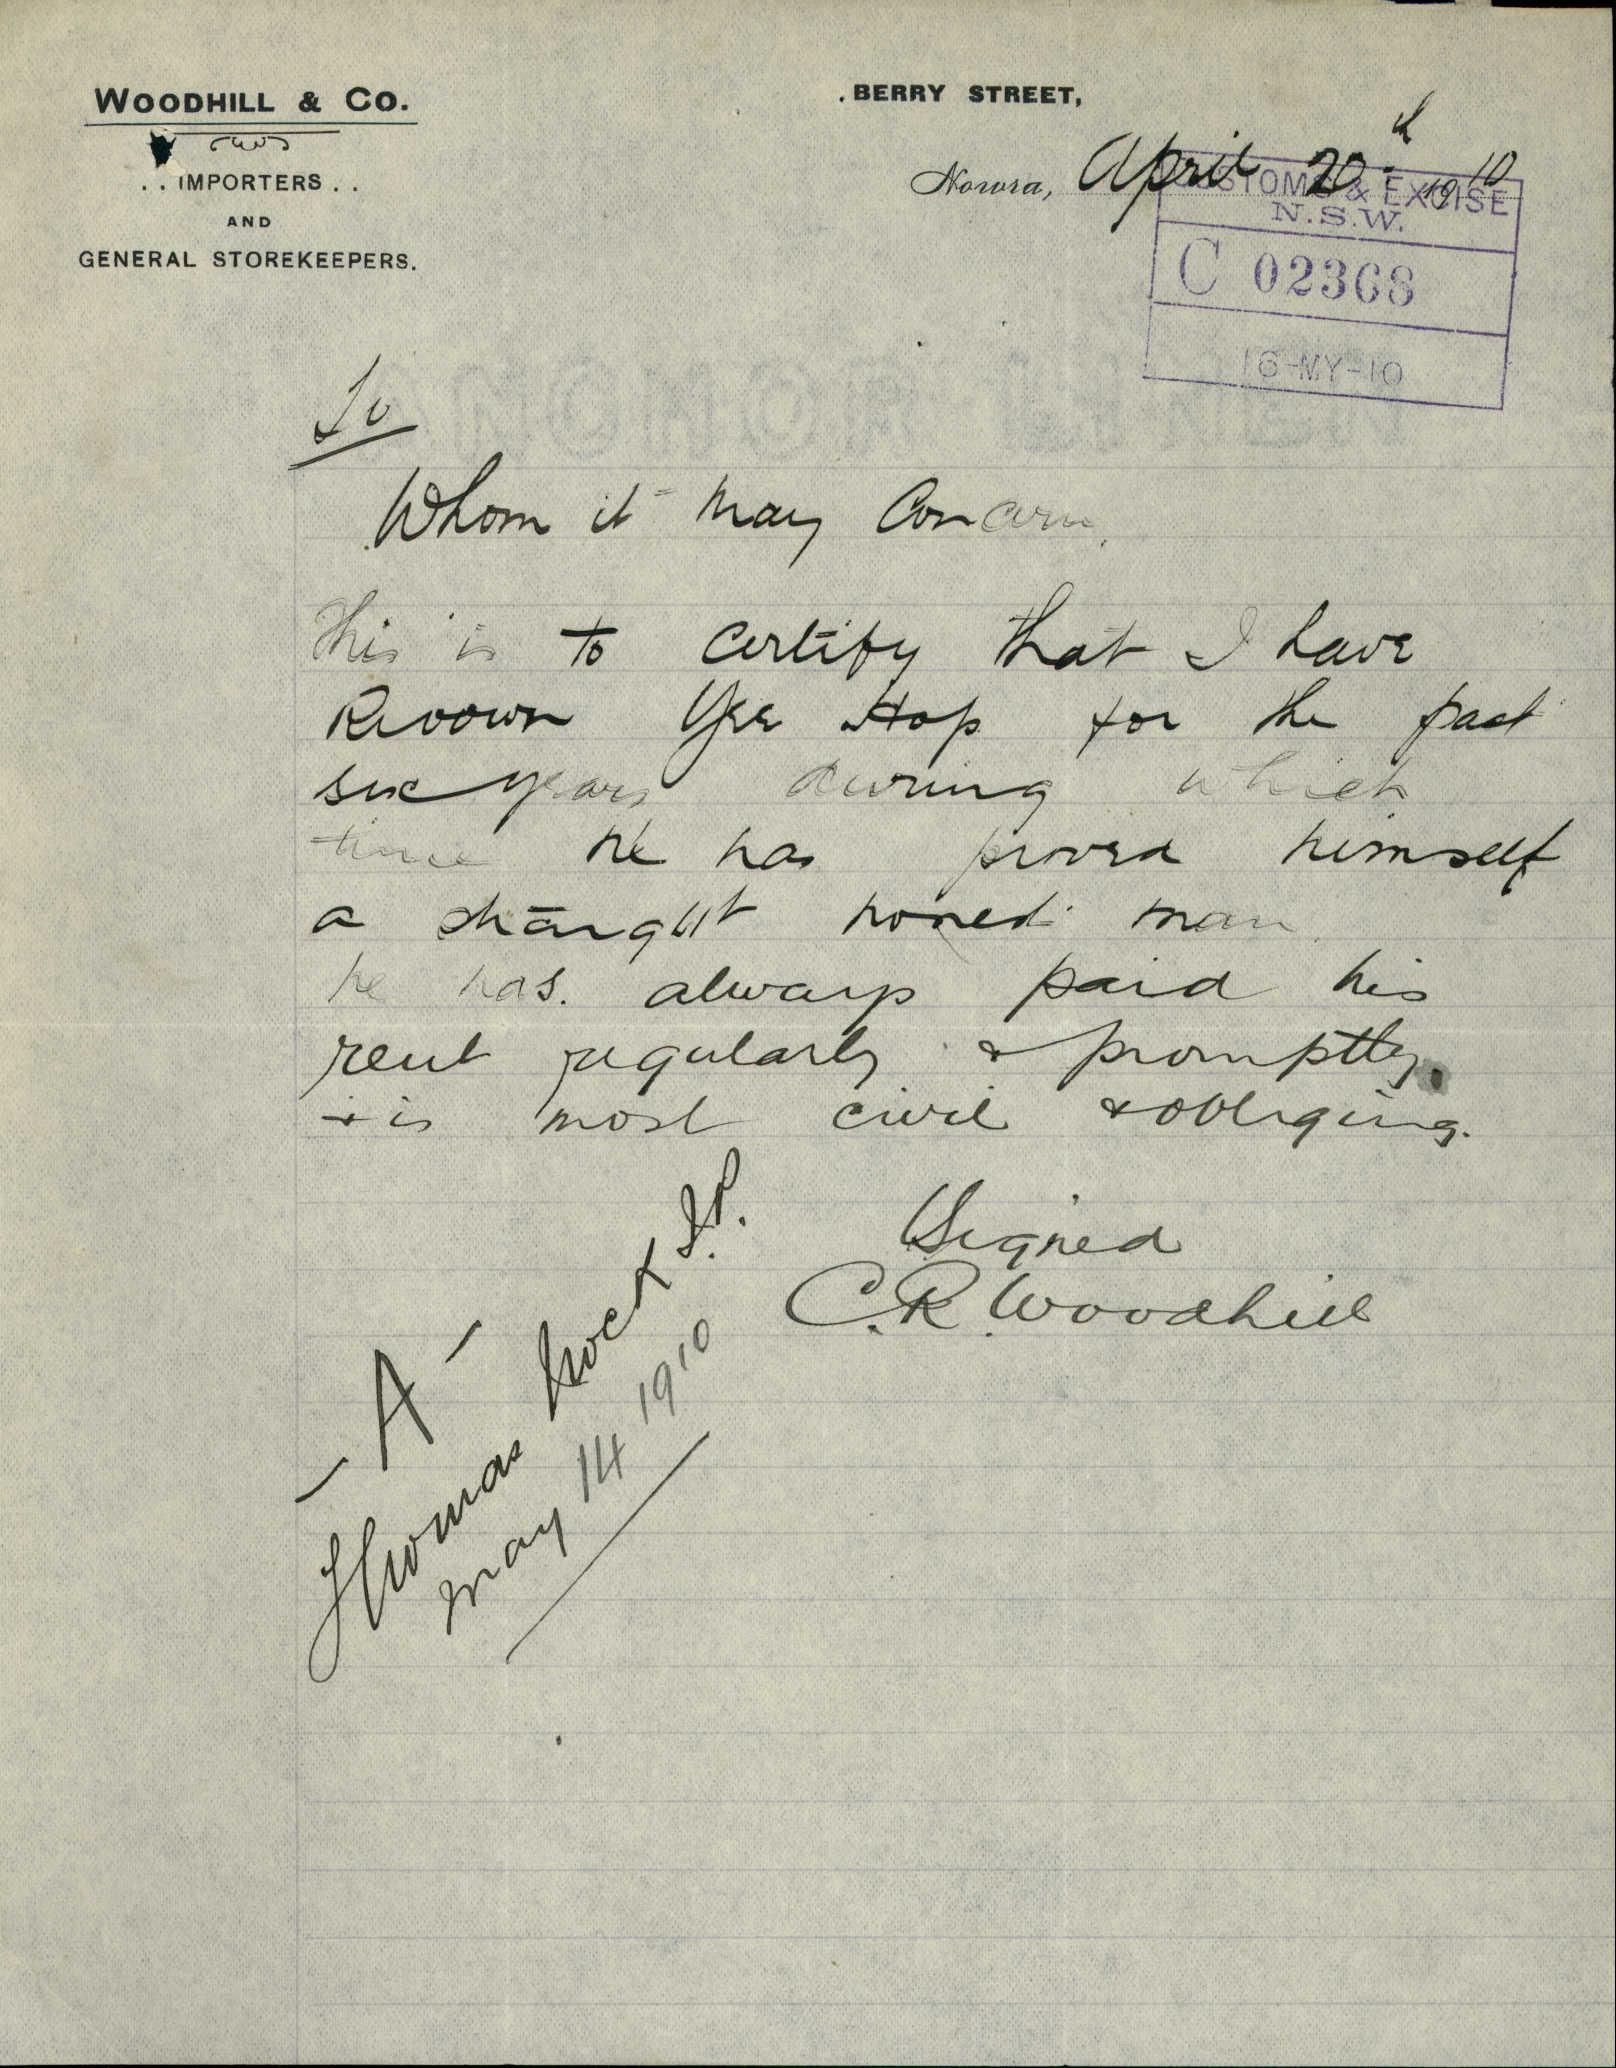 WOODHILL & CO.
. . IMPORTERS . .
AND
GENERAL STOREKEEPERS.
BERRY STREET,
Nowra, April 20th 1910
CUSTOMS & EXCISE
N.S.W.
C 02368
16-MY-10
To
Whom it May Concern.
This is to certify that I have
Known Yee Hop for the past
six years during which
time he has proved himself
a straight honest man
he has. always paid his
rent regularly & promptly.
& is most civil & obliging.
Signed
C.R. Woodhill
- A -
Thomas J.P.
May 14 1910